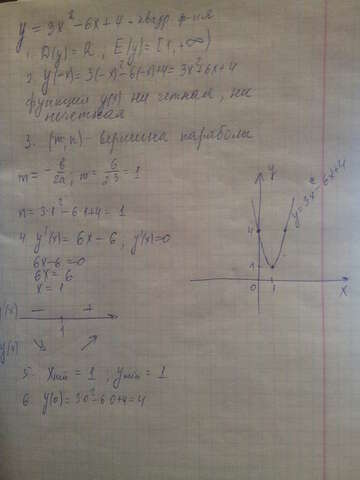 y = 3x² - 6x + 4 - квадр. ф-ия
1. D(y) = R, E(y) = [1, +∞)
2. y(-x) = 3(-x)² - 6(-x) + 4 = 3x² + 6x + 4
функция y(x) ни четная, ни
нечетная
3. (m, n) - вершина параболы
m = -b/2a, m = 6/2·3 = 1
n = 3·1² - 6·1 + 4 = 1
4. y'(x) = 6x - 6, y'(x) = 0
6x - 6 = 0
6x = 6
x = 1
y'(x) - +
1
y(x) ↘ ↗
5. Xmin = 1, Ymin = 1
6. y(0) = 3·0² - 6·0 + 4 = 4
y
y = 3x² - 6x + 4
4
1
0 1 X